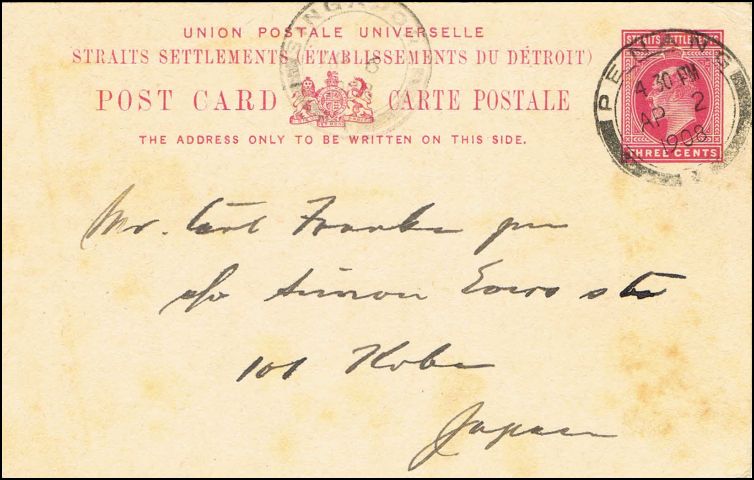 UNION POSTALE UNIVERSELLE
STRAITS SETTLEMENTS (ÉTABLISSEMENTS DU DÉTROIT)
POST CARD CARTE POSTALE
THE ADDRESS ONLY TO BE WRITTEN ON THIS SIDE.
SINGAPO
STRAITS SETTLEMENTS
THREE CENTS
PENANG
4.30 PM
AP 2
1908
Mr. Carl Franke
c/o Simon Evers
101 Kobe
Japan